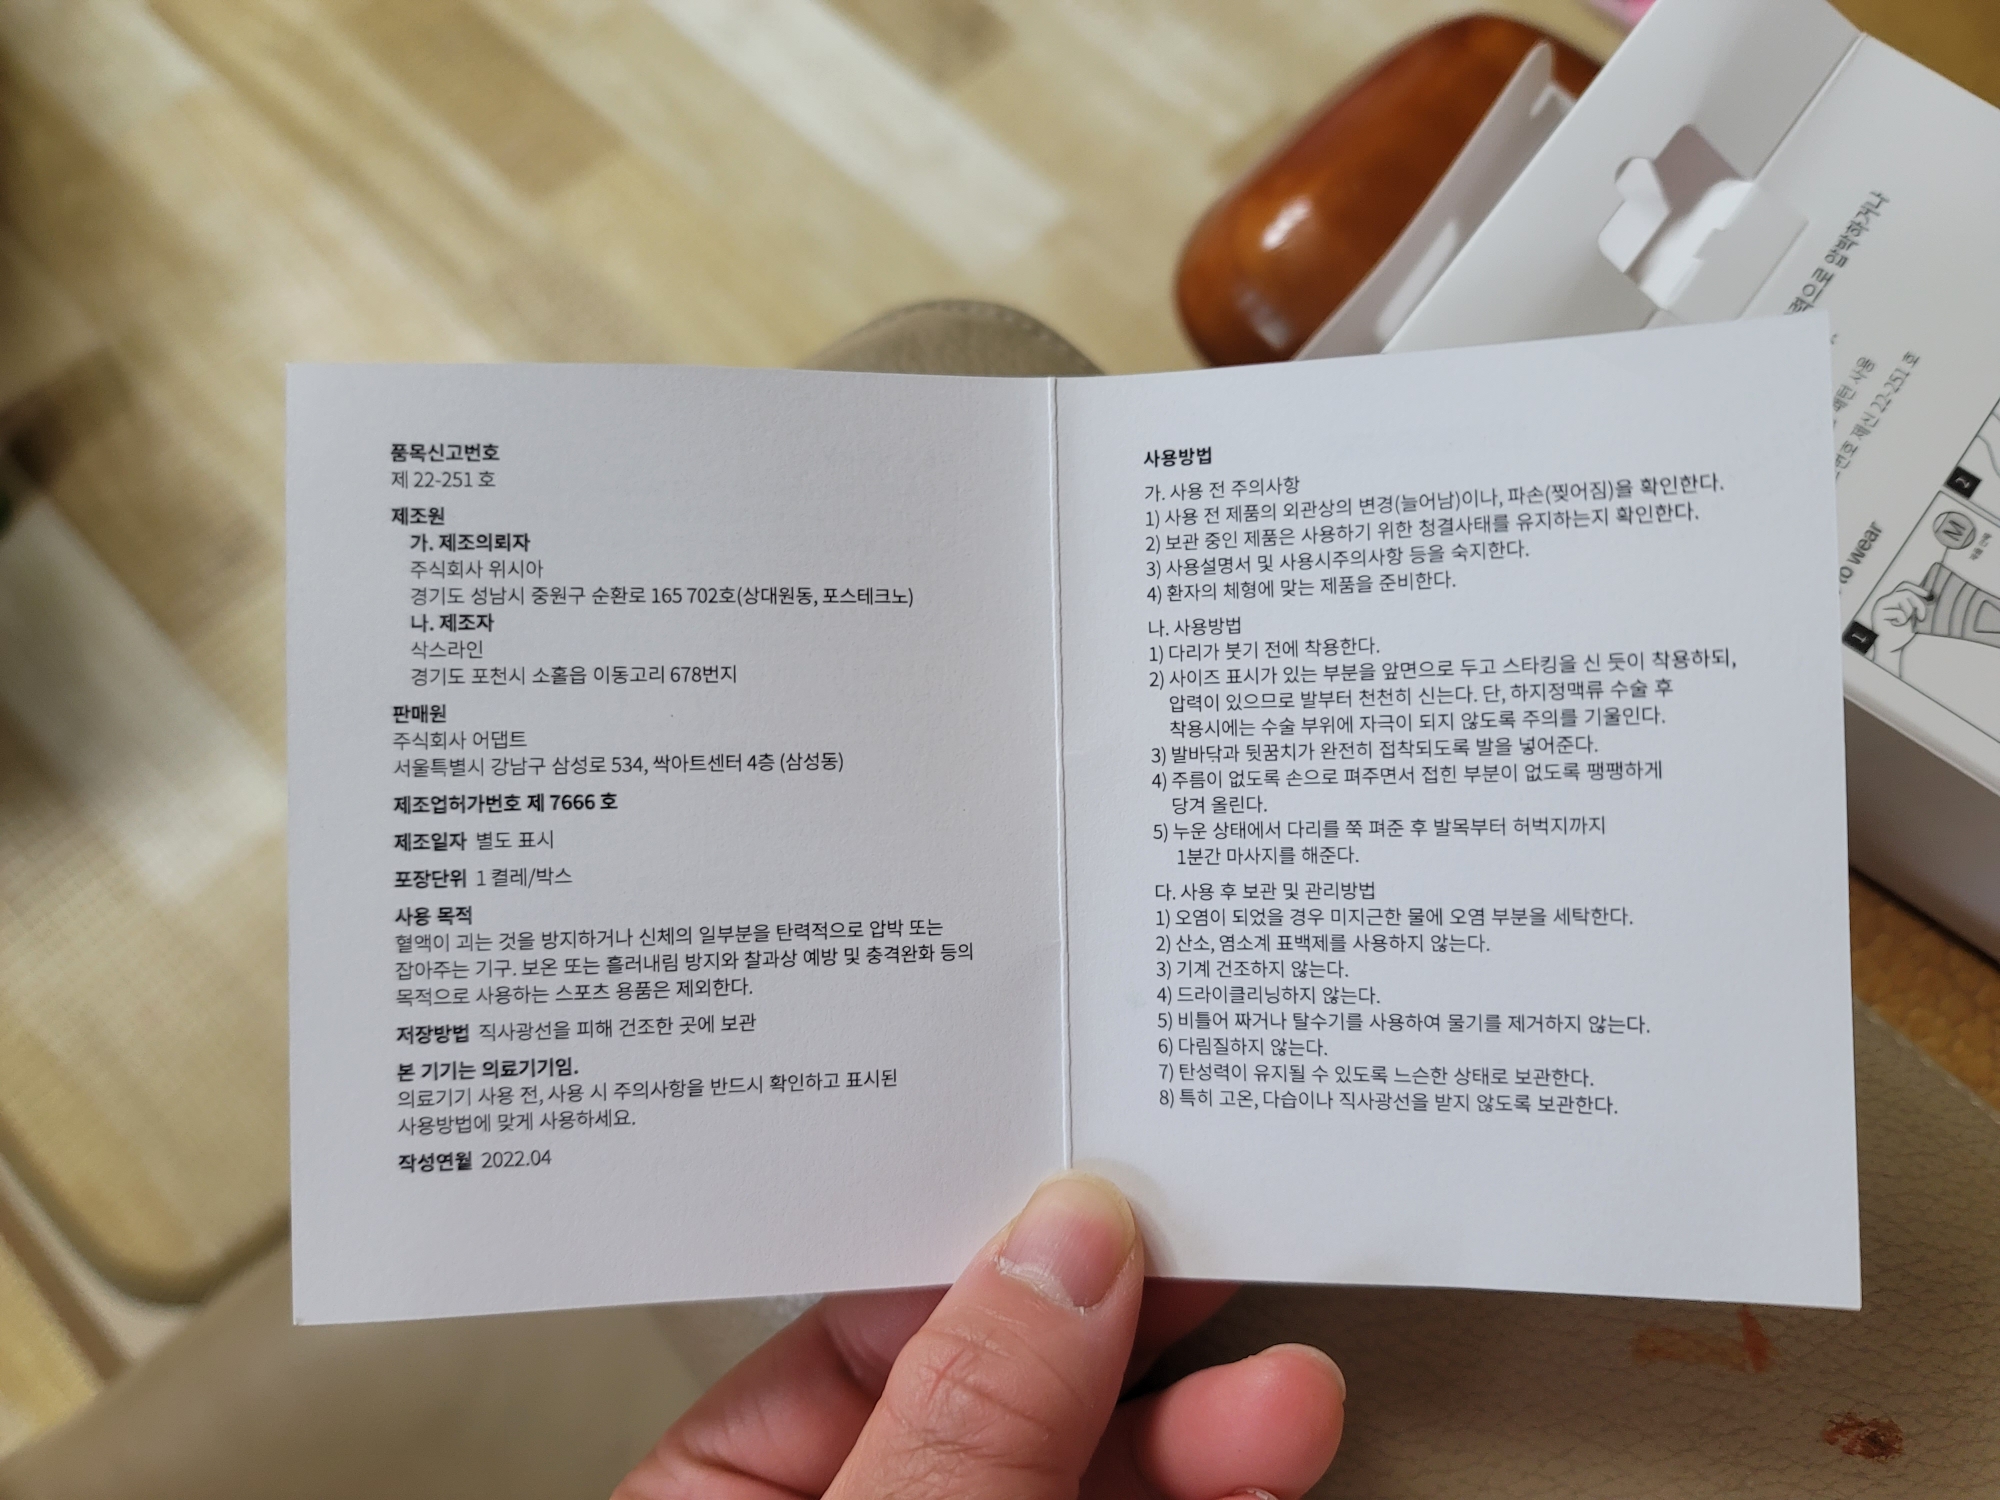 품목신고번호
제 22-251 호
제조원
가. 제조의뢰자
주식회사 위시아
경기도 성남시 중원구 순환로 165 702호(상대원동, 포스테크노)
나. 제조자
삭스라인
경기도 포천시 소홀읍 이동고리 678번지
판매원
주식회사 어댑트
서울특별시 강남구 삼성로 534, 싹아트센터 4층 (삼성동)
제조업허가번호 제 7666 호
제조일자 별도 표시
포장단위 1 켤레/박스
사용 목적
혈액이 괴는 것을 방지하거나 신체의 일부분을 탄력적으로 압박 또는
잡아주는 기구. 보온 또는 흘러내림 방지와 찰과상 예방 및 충격완화 등의
목적으로 사용하는 스포츠 용품은 제외한다.
저장방법 직사광선을 피해 건조한 곳에 보관
본 기기는 의료기기임.
의료기기 사용 전, 사용 시 주의사항을 반드시 확인하고 표시된
사용방법에 맞게 사용하세요.
작성연월 2022.04
사용방법
가. 사용 전 주의사항
1) 사용 전 제품의 외관상의 변경(늘어남)이나, 파손(찢어짐)을 확인한다.
2) 보관 중인 제품은 사용하기 위한 청결사태를 유지하는지 확인한다.
3) 사용설명서 및 사용시주의사항 등을 숙지한다.
4) 환자의 체형에 맞는 제품을 준비한다.
나. 사용방법
1) 다리가 붓기 전에 착용한다.
2) 사이즈 표시가 있는 부분을 앞면으로 두고 스타킹을 신 듯이 착용하되,
압력이 있으므로 발부터 천천히 신는다. 단, 하지정맥류 수술 후
착용시에는 수술 부위에 자극이 되지 않도록 주의를 기울인다.
3) 발바닥과 뒷꿈치가 완전히 접착되도록 발을 넣어준다.
4) 주름이 없도록 손으로 펴주면서 접힌 부분이 없도록 팽팽하게
당겨 올린다.
5) 누운 상태에서 다리를 쭉 펴준 후 발목부터 허벅지까지
1분간 마사지를 해준다.
다. 사용 후 보관 및 관리방법
1) 오염이 되었을 경우 미지근한 물에 오염 부분을 세탁한다.
2) 산소, 염소계 표백제를 사용하지 않는다.
3) 기계 건조하지 않는다.
4) 드라이클리닝하지 않는다.
5) 비틀어 짜거나 탈수기를 사용하여 물기를 제거하지 않는다.
6) 다림질하지 않는다.
7) 탄성력이 유지될 수 있도록 느슨한 상태로 보관한다.
8) 특히 고온, 다습이나 직사광선을 받지 않도록 보관한다.
압박하거나
사용
제신 22-251 호
to wear
1
M
2